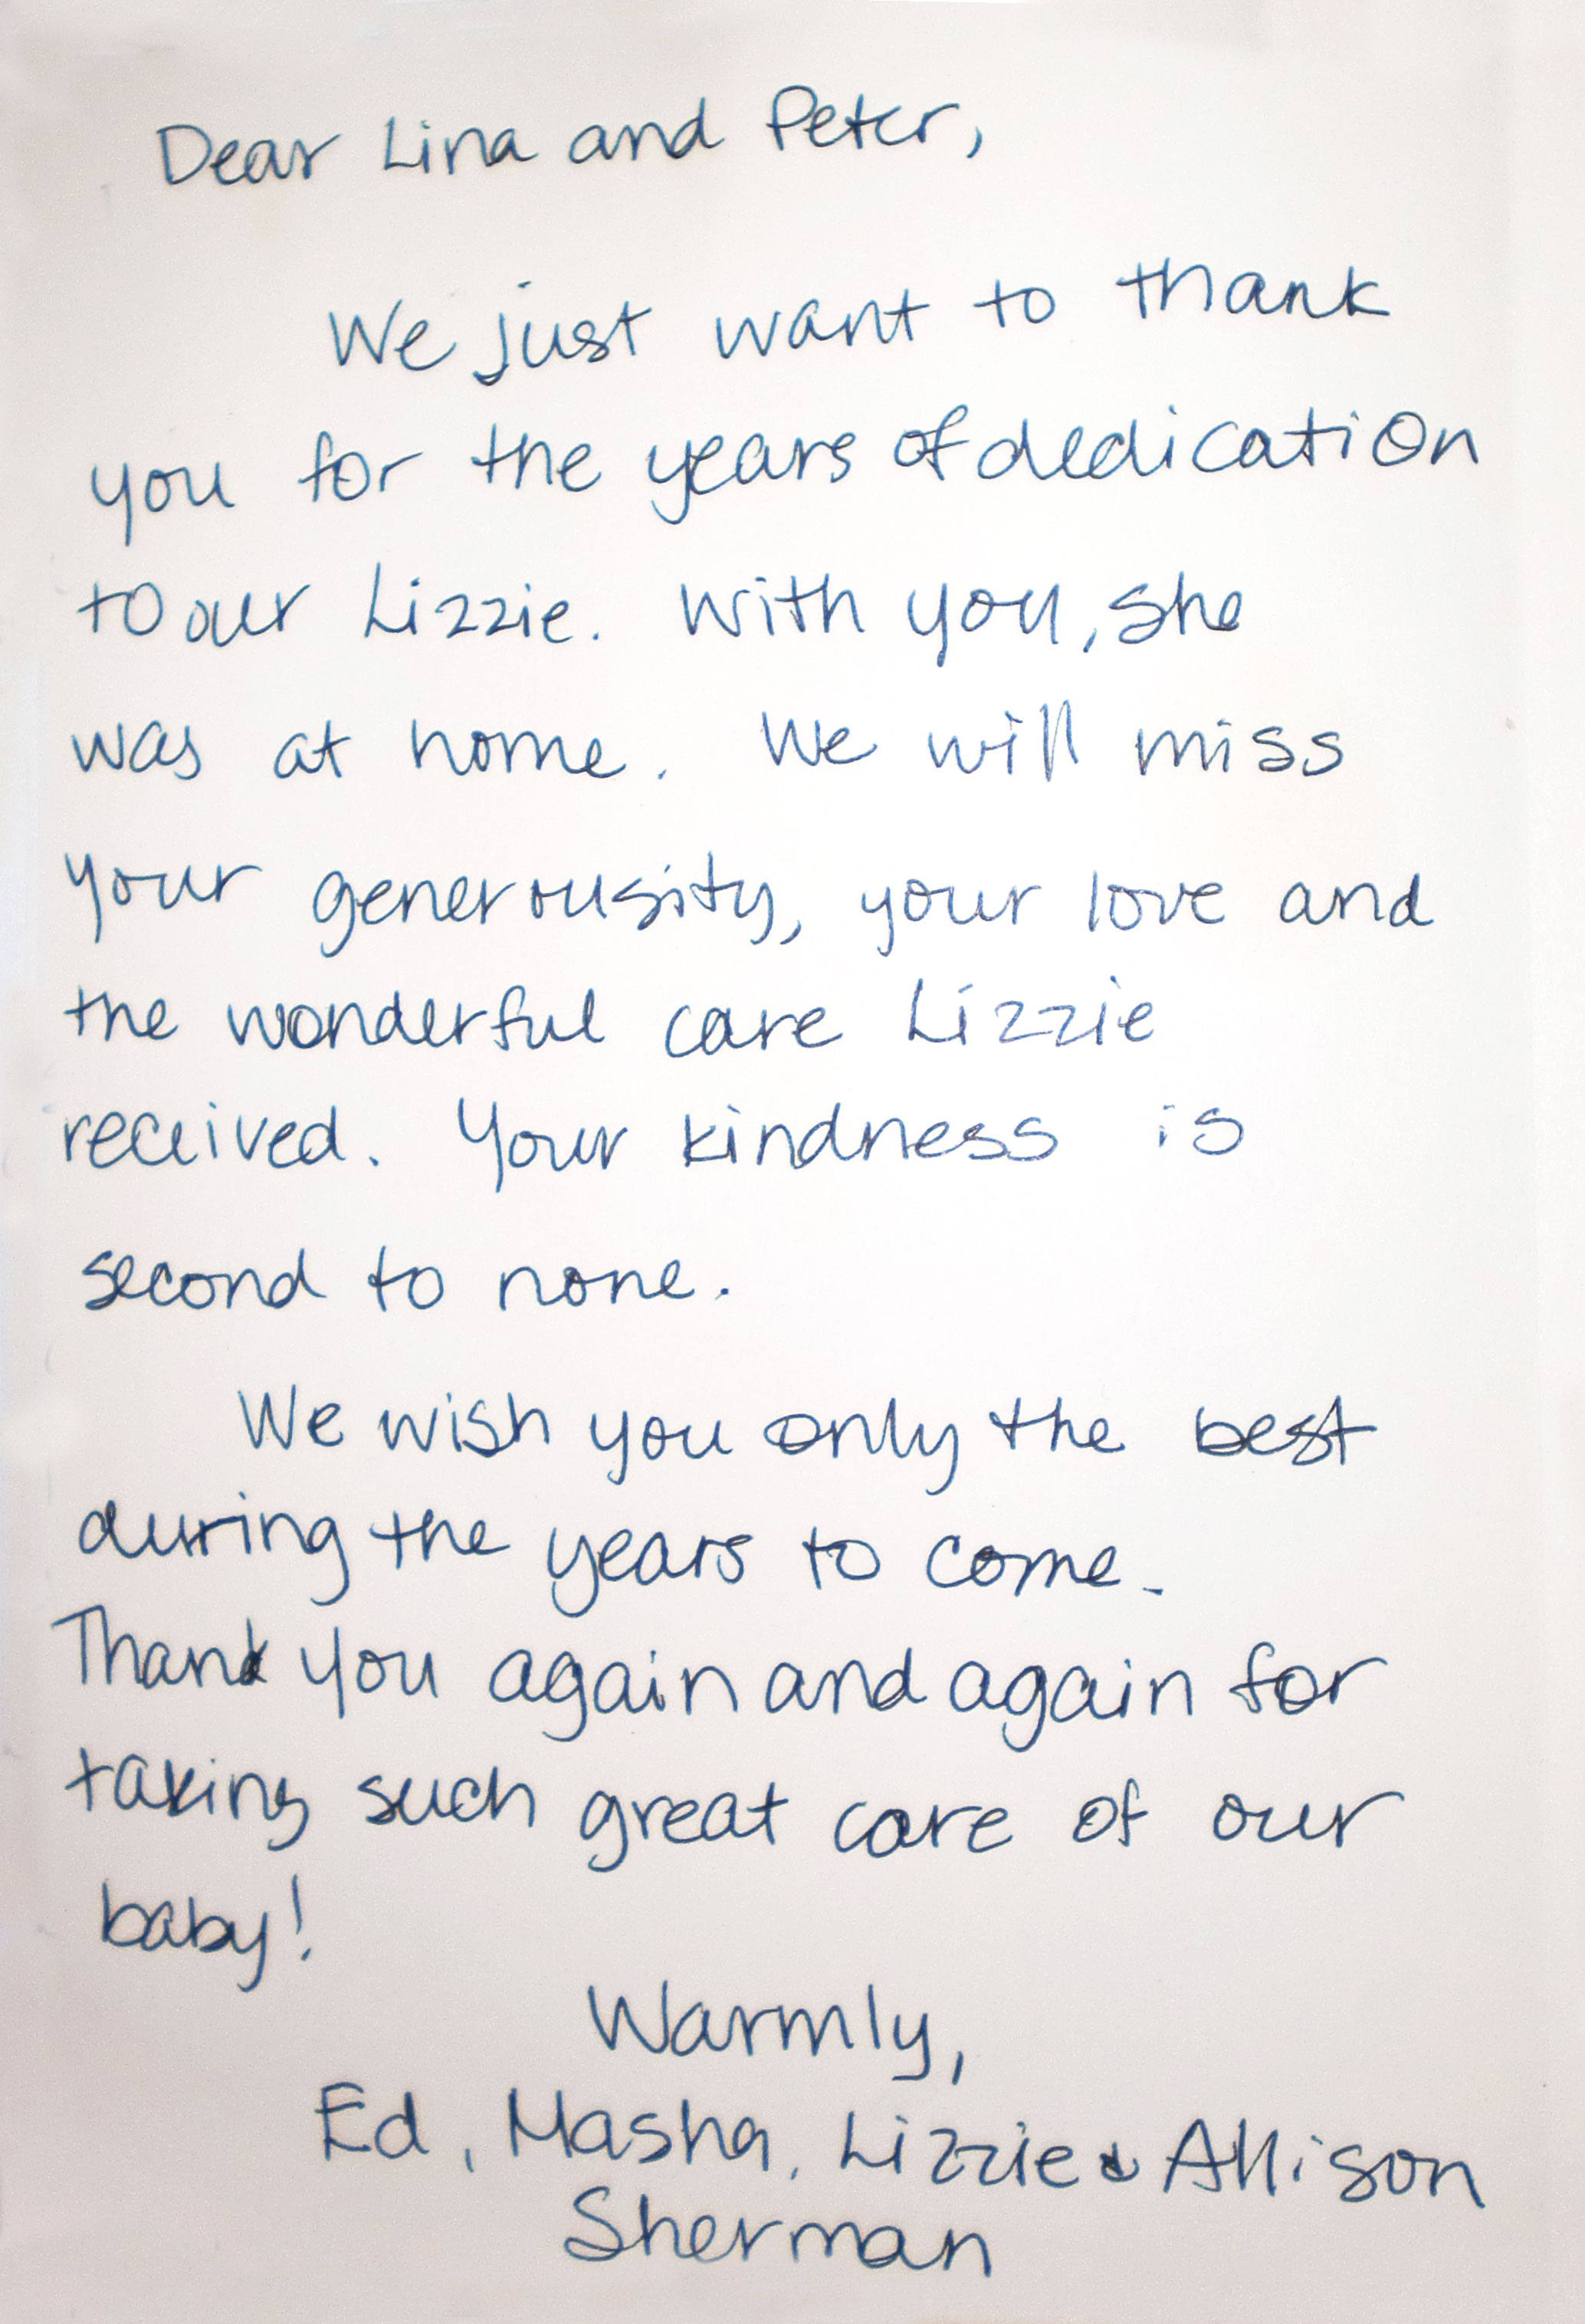 Dear Lina and Peter,
We just want to thank
you for the years of dedication
to our Lizzie. With you, she
was at home. We will miss
your generousity, your love and
the wonderful care Lizzie
received. Your kindness is
second to none.
We wish you only the best
during the years to come.
Thank you again and again for
taking such great care of our
baby!
Warmly,
Ed, Masha, Lizzie & Allison
Sherman